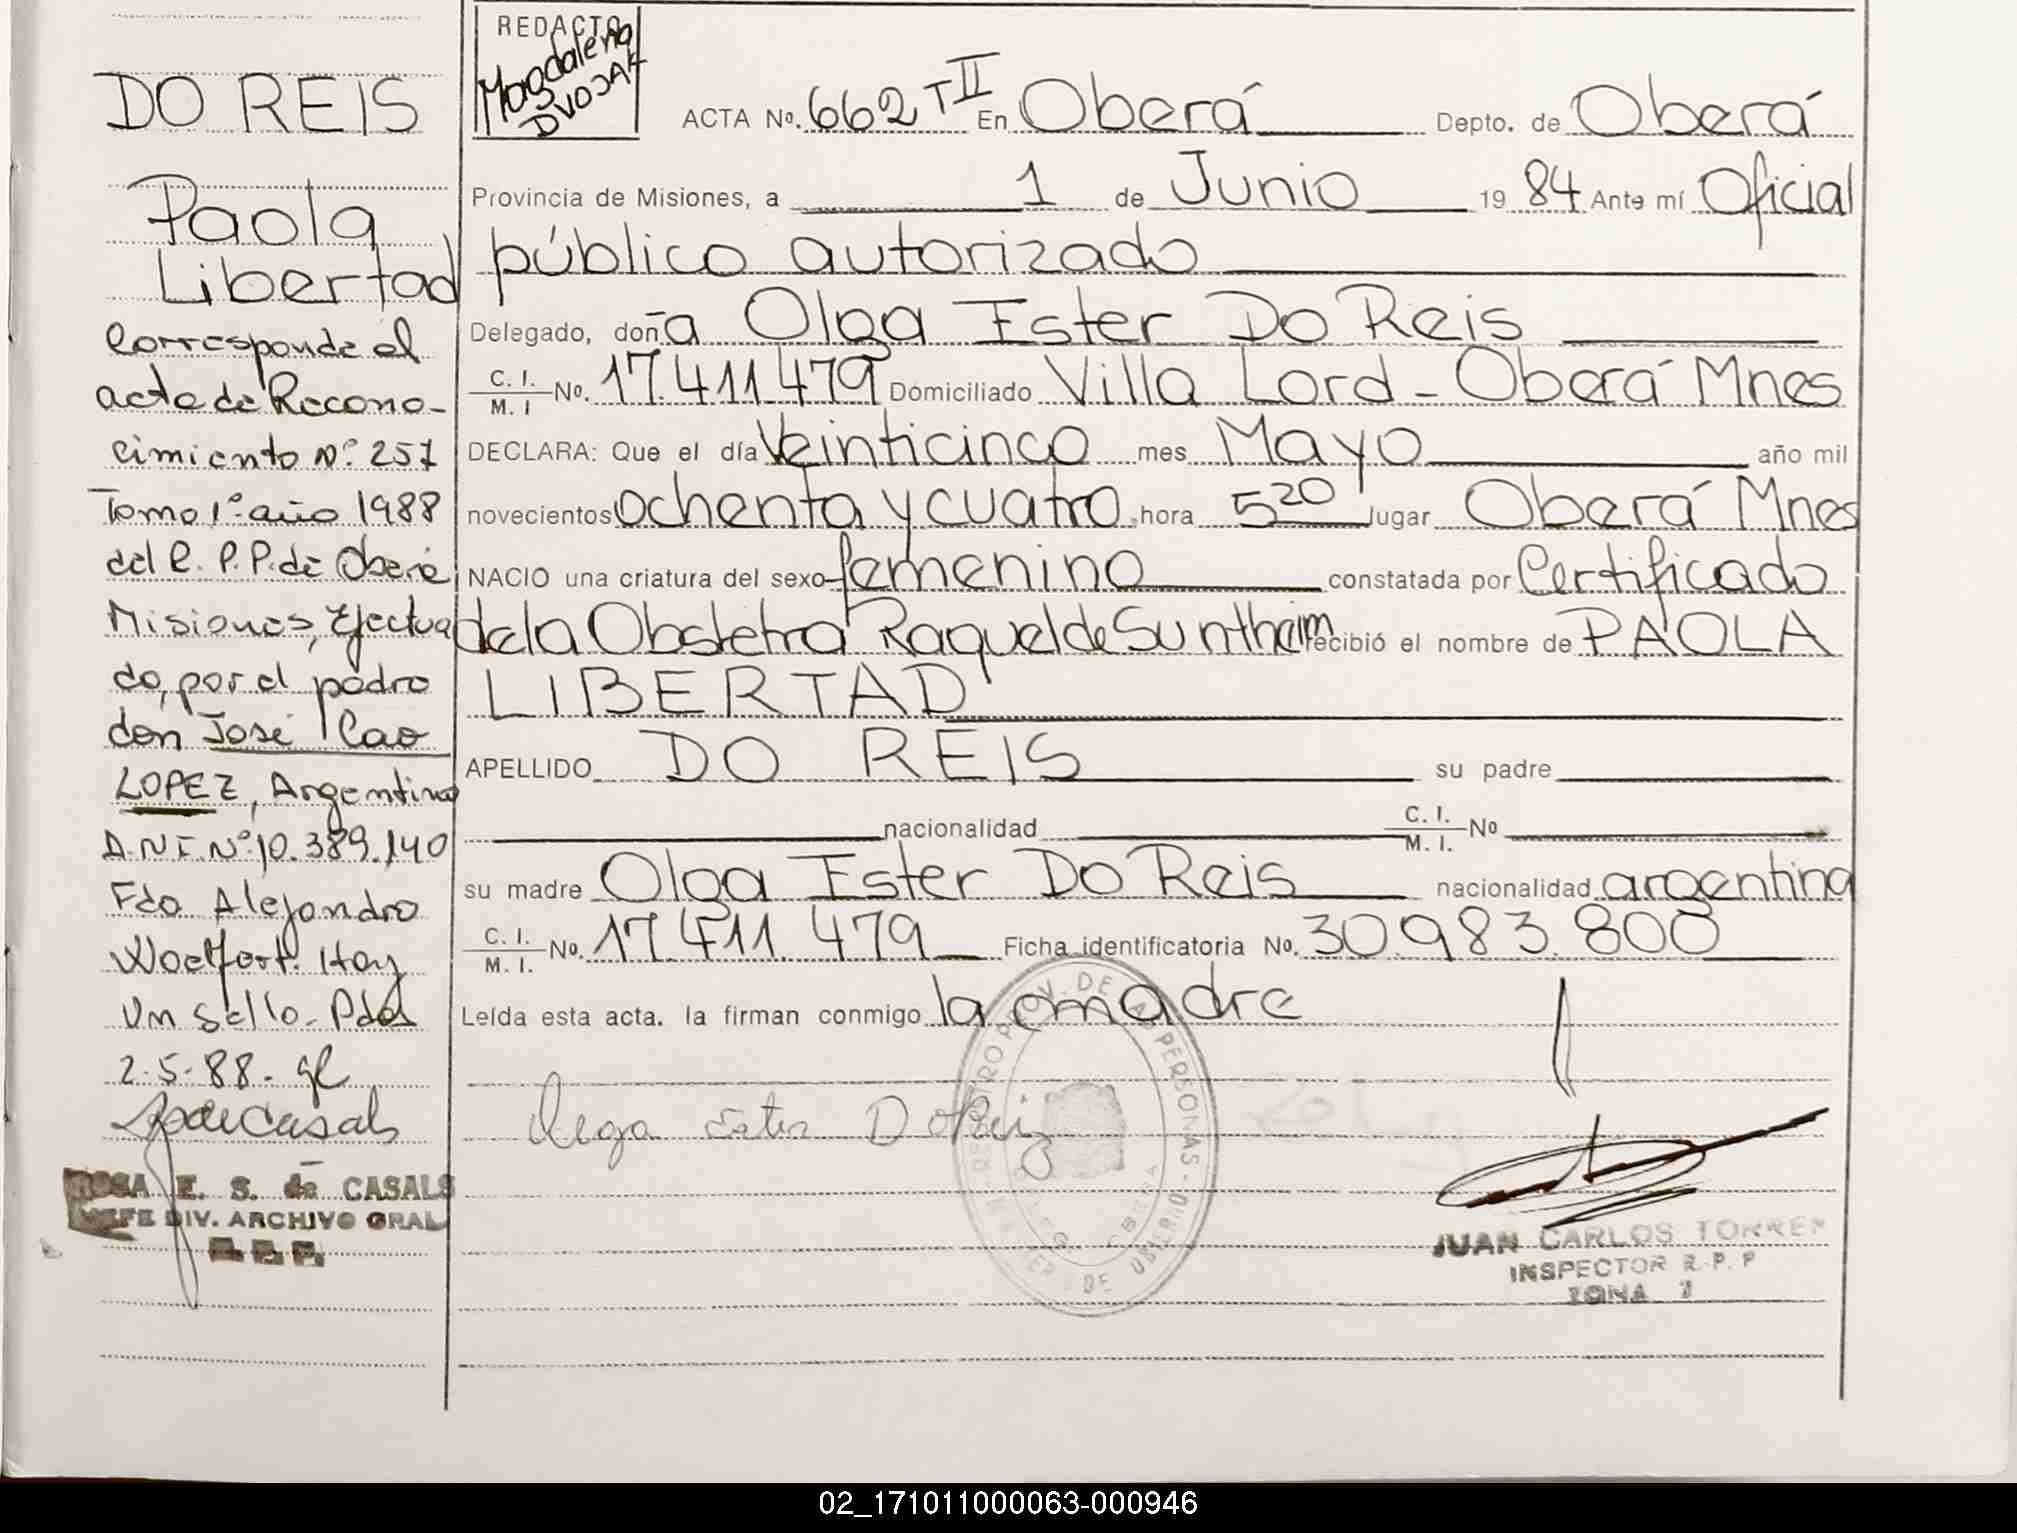 DO REIS
Paola
Libertad
Corresponde al
acta de Recono-
cimiento Nº 257
Tomo 1º año 1988
del R. P.P. de Oberá
Misiones, Efectua
do, por el padre
don José Cao
LOPEZ, Argentino
D.N.I. Nº 10.389.140
Fdo Alejandro
Hay
Un sello. Pdas
2-5-88.
ROSA E. S. de CASALS
JEFE DIV. ARCHIVO GRAL
R.P.P.
REDACTO
Magdalena
DVOJAK
ACTA Nº. 662 T II En Oberá Depto. de Oberá
Provincia de Misiones, a 1 de Junio 19 84 Ante mí Oficial
público autorizado
Delegado, doña Olga Ester Do Reis
C. I. / M. I No. 17.411.479 Domiciliado Villa Lord - Oberá Mnes
DECLARA: Que el día Veinticinco mes Mayo año mil
novecientos ochenta y cuatro hora 5 20 lugar Oberá Mnes
NACIO una criatura del sexo femenino constatada por Certificado
de la Obstetra Raquel de Suntheim recibió el nombre de PAOLA
LIBERTAD
APELLIDO DO REIS su padre
nacionalidad C. I. / M. I. Nº
su madre Olga Ester Do Reis nacionalidad argentina
C. I. / M. I. No. 17.411.479 Ficha identificatoria No. 30.983.800
Leída esta acta. la firman conmigo la madre
Olga Ester Do Reis
JUAN CARLOS TORRES
INSPECTOR R. P. P
ZONA
02_171011000063-000946